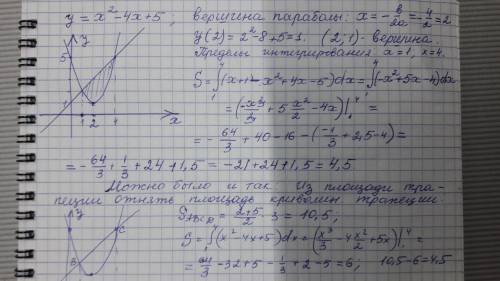 y = x² - 4x + 5, вершина параболы: x = -b/2a = -4/2 = 2
y(2) = 2² - 8 + 5 = 1. (2; 1) - вершина.
Пределы интегрирования x = 1, x = 4.
S = ∫₁⁴ (x+1 - x² + 4x - 5) dx = ∫₁⁴ (-x² + 5x - 4) dx
= (-x³/3 + 5 x²/2 - 4x) |₁⁴ =
= - 64/3 + 40 - 16 - (-1/3 + 2,5 - 4) =
= - 64/3 + 1/3 + 24 + 1,5 = -21 + 24 + 1,5 = 4,5
Можно было и так. Из площади тра-
пеции отнять площадь криволин. трапеции.
= 2+5/2 · 3 = 10,5;
S = ∫(x² - 4x + 5) dx = (x³/3 - 4x²/2 + 5x) |₁⁴ =
= 64/3 - 32 + 5 - 1/3 + 2 - 5 = 6; 10,5 - 6 = 4,5
y
5
1
1
2
4
x
y
B
C